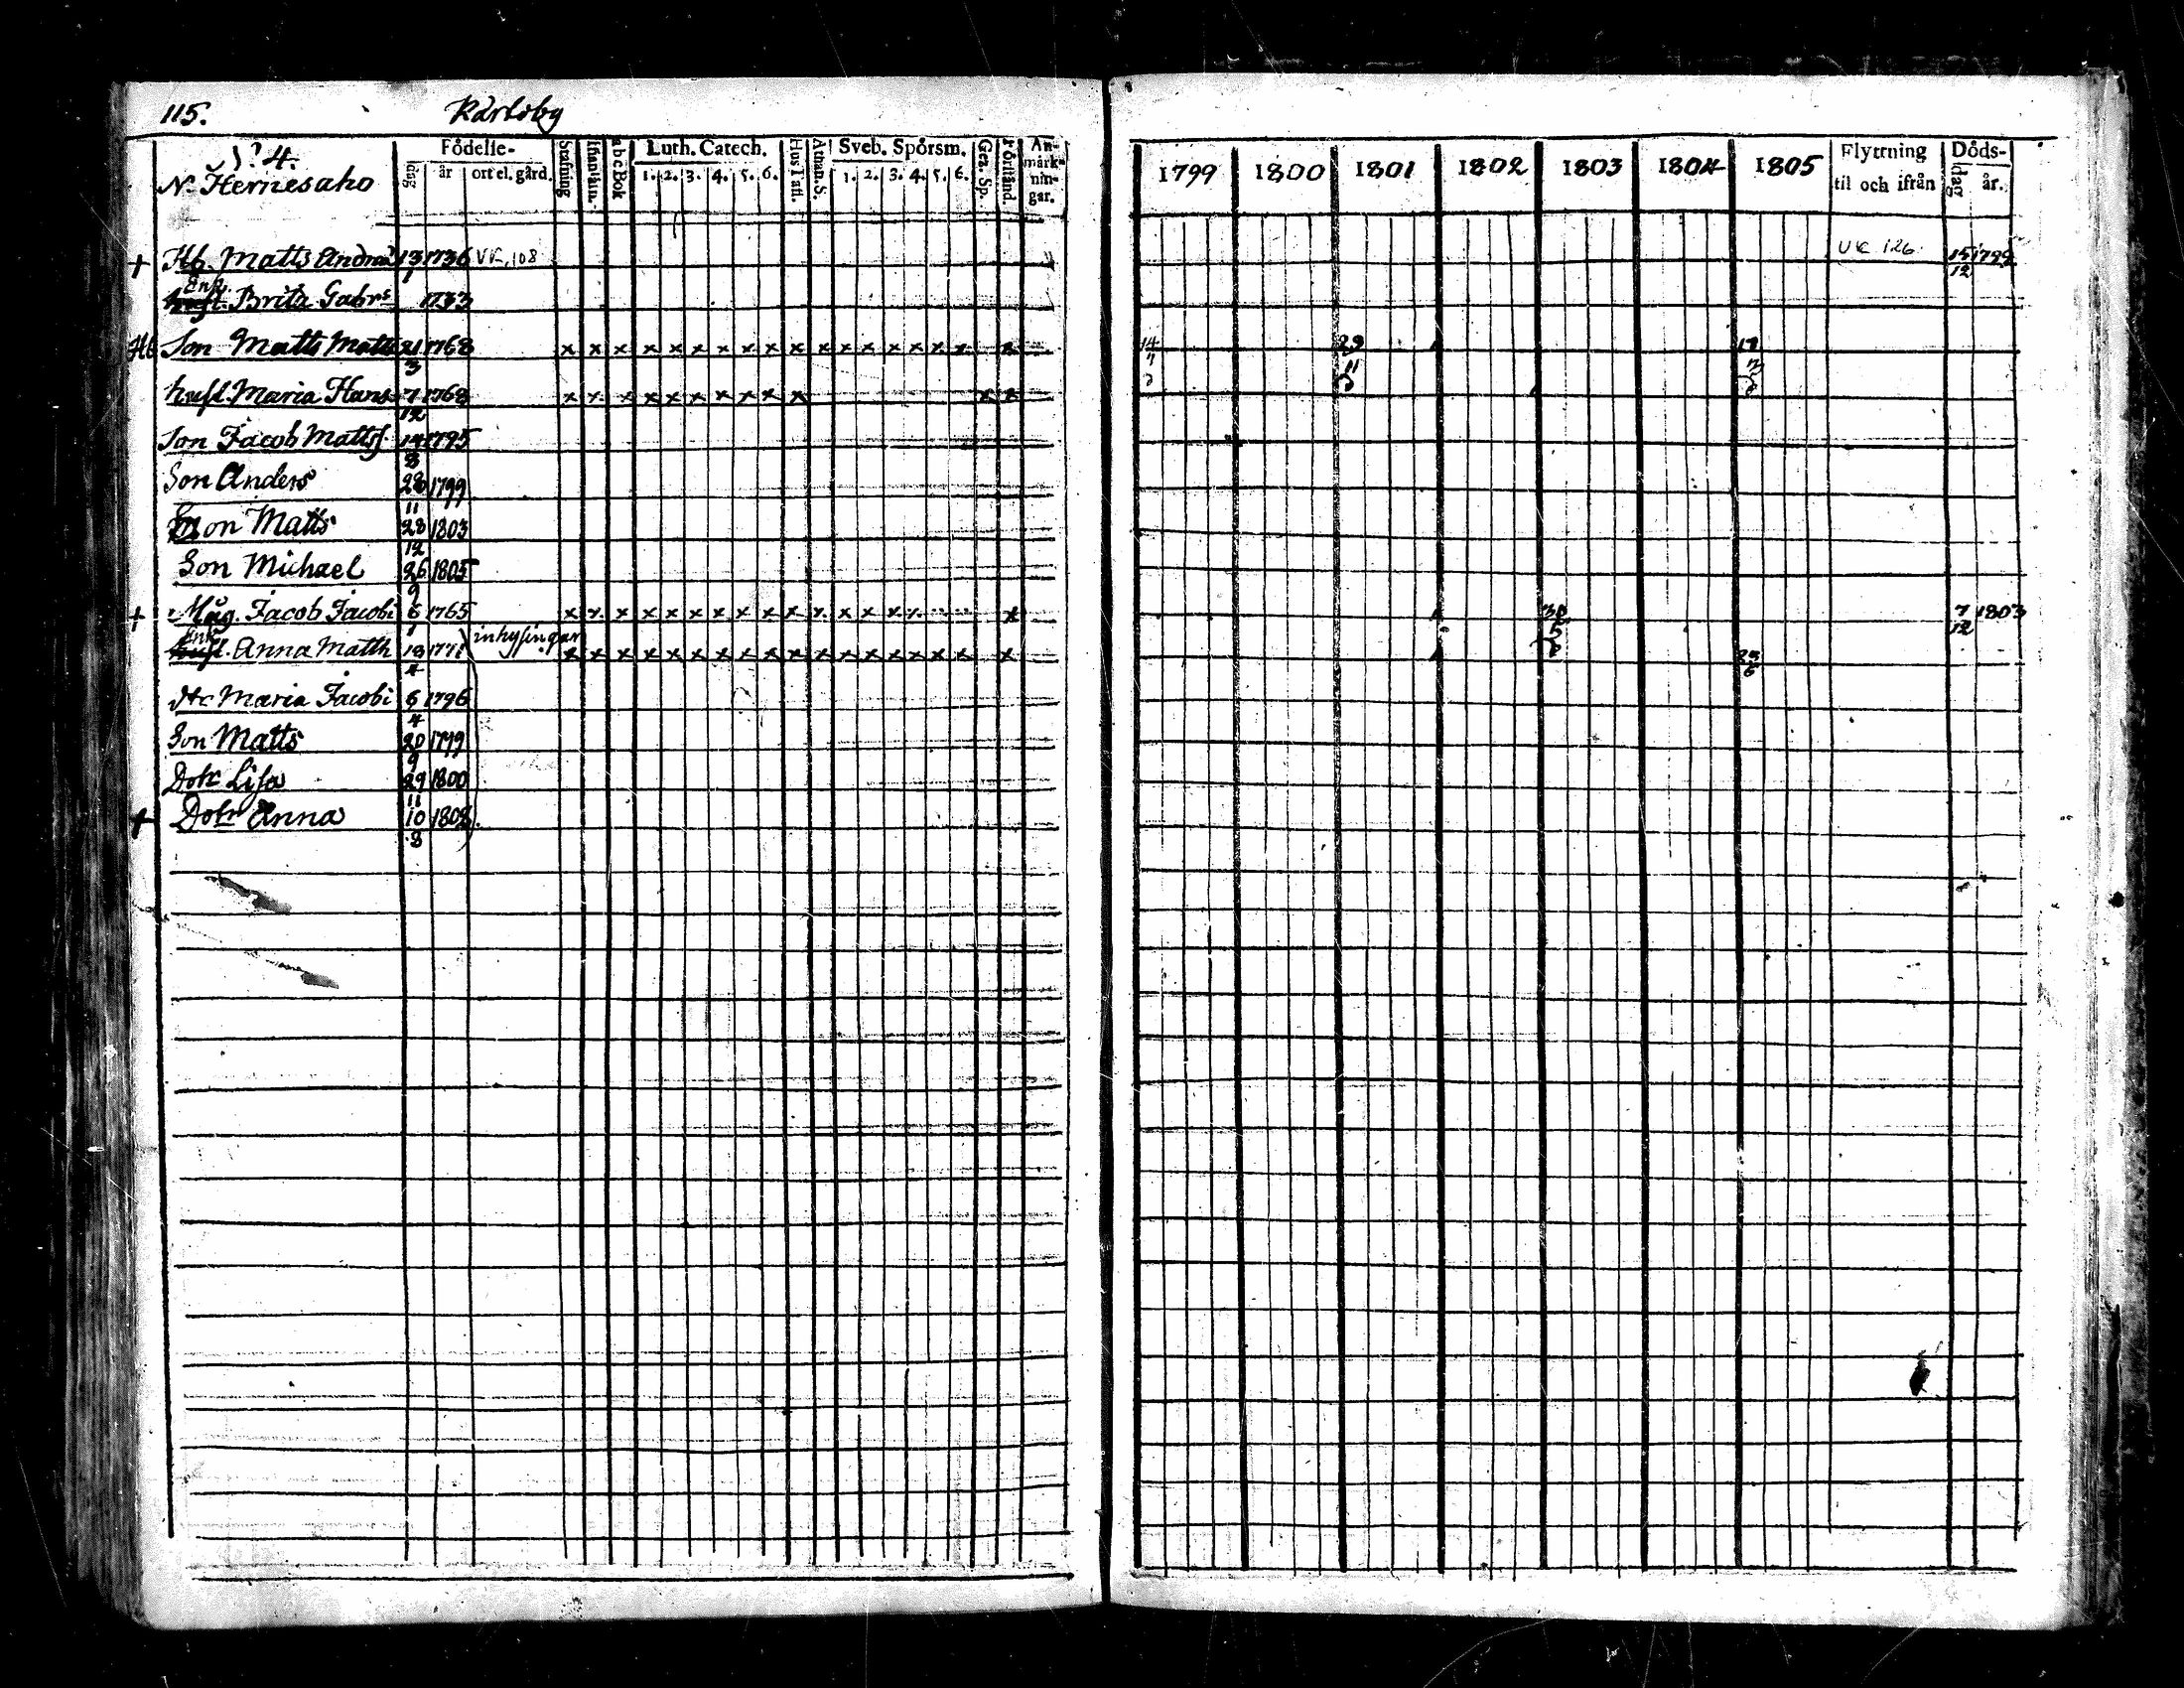 115. Kårloby
N:º 4.
N. Hernesaho
Födelse-
dag år ort el. gård.
Stafning
Innanläsn.
abcBok
Luth. Catech.
1. 2. 3. 4. 5. 6.
Hus Tafl.
Athan. S.
Sveb. Spörsm.
1. 2. 3. 4. 5. 6.
Gez. Sp.
Förstånd.
An-
märk-
nin-
gar.
1799 1800 1801 1802 1803 1804 1805
Flyttning
til och ifrån
Döds-
dag år.
+ Hb. Matts Andrae 13/1 1736 VK, 108 UK 126 15/12 1799
Enk. hust. Brita Gabrs 1733
Hb Son Matts Matts 21/3 1768 x x x x x x x x x x x x x x x x x x 14/7 29/11 17/3
hust. Maria Hans 7/12 1768 x x x x x x x x x x x x
Son Jacob Mattss. 14/8 1795
Son Anders 28/11 1799
Son Matts 28/12 1803
Son Michael 26/9 1805
+ Måg. Jacob Jacobi 6/1 1765 x x x x x x x x x x x x x x x x 30/5 7/12 1803
Enk. hust. Anna Matth 13/4 1771 inhysingar x x x x x x x x x x x x x x x x x x 23/6
dtr Maria Jacobi 6/4 1796
Son Matts 20/9 1799
Dotr Lisa 29/11 1800
+ Dotr Anna 10/8 1802